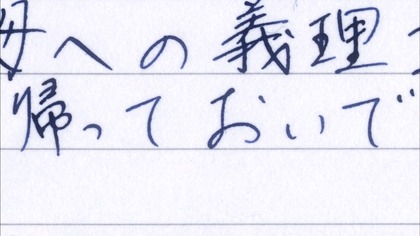 母への義理
帰っておいで